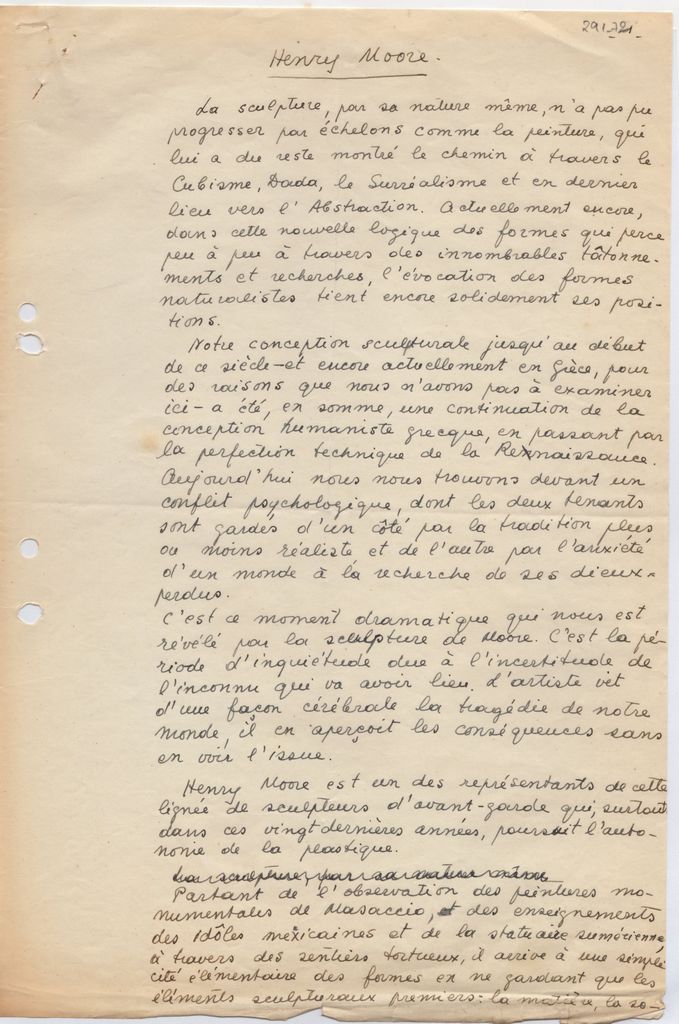 291.72.
Henry Moore.
La sculpture, par sa nature même, n'a pas pu
progresser par échelons comme la peinture, qui
lui a du reste montré le chemin à travers le
Cubisme, Dada, le Surréalisme et en dernier
lieu vers l'Abstraction. Actuellement encore,
dans cette nouvelle logique des formes qui perce
peu à peu à travers des innombrables tâtonne-
ments et recherches, l'évocation des formes
naturalistes tient encore solidement ses posi-
tions.
Notre conception sculpturale jusqu'au début
de ce siècle - et encore actuellement en Grèce, pour
des raisons que nous n'avons pas à examiner
ici - a été, en somme, une continuation de la
conception humaniste grecque, en passant par
la perfection technique de la Rennaissance.
Aujourd'hui nous nous trouvons devant un
conflit psychologique, dont les deux tenants
sont gardés d'un côté par la tradition plus
ou moins réaliste et de l'autre par l'anxiété
d'un monde à la recherche de ses dieux-
perdus.
C'est ce moment dramatique qui nous est
révélé par la sculpture de Moore. C'est la pé-
riode d'inquiétude due à l'incertitude de
l'inconnu qui va avoir lieu. L'artiste vit
d'une façon cérébrale la tragédie de notre
monde, il en aperçoit les conséquences sans
en voir l'issue.
Henry Moore est un des représentants de cette
lignée de sculpteurs d'avant-garde qui, surtout
dans ces vingt dernières années, poursuit l'auto-
nomie de la plastique.
La sculpture, par sa nature même
Partant de l'observation des peintures mo-
numentales de Masaccio, et des enseignements
des idôles mexicaines et de la statuaire sumérienne,
à travers des sentiers tortueux, il arrive à une simpli-
cité élémentaire des formes en ne gardant que les
éléments sculpturaux premiers: la matière, la so-